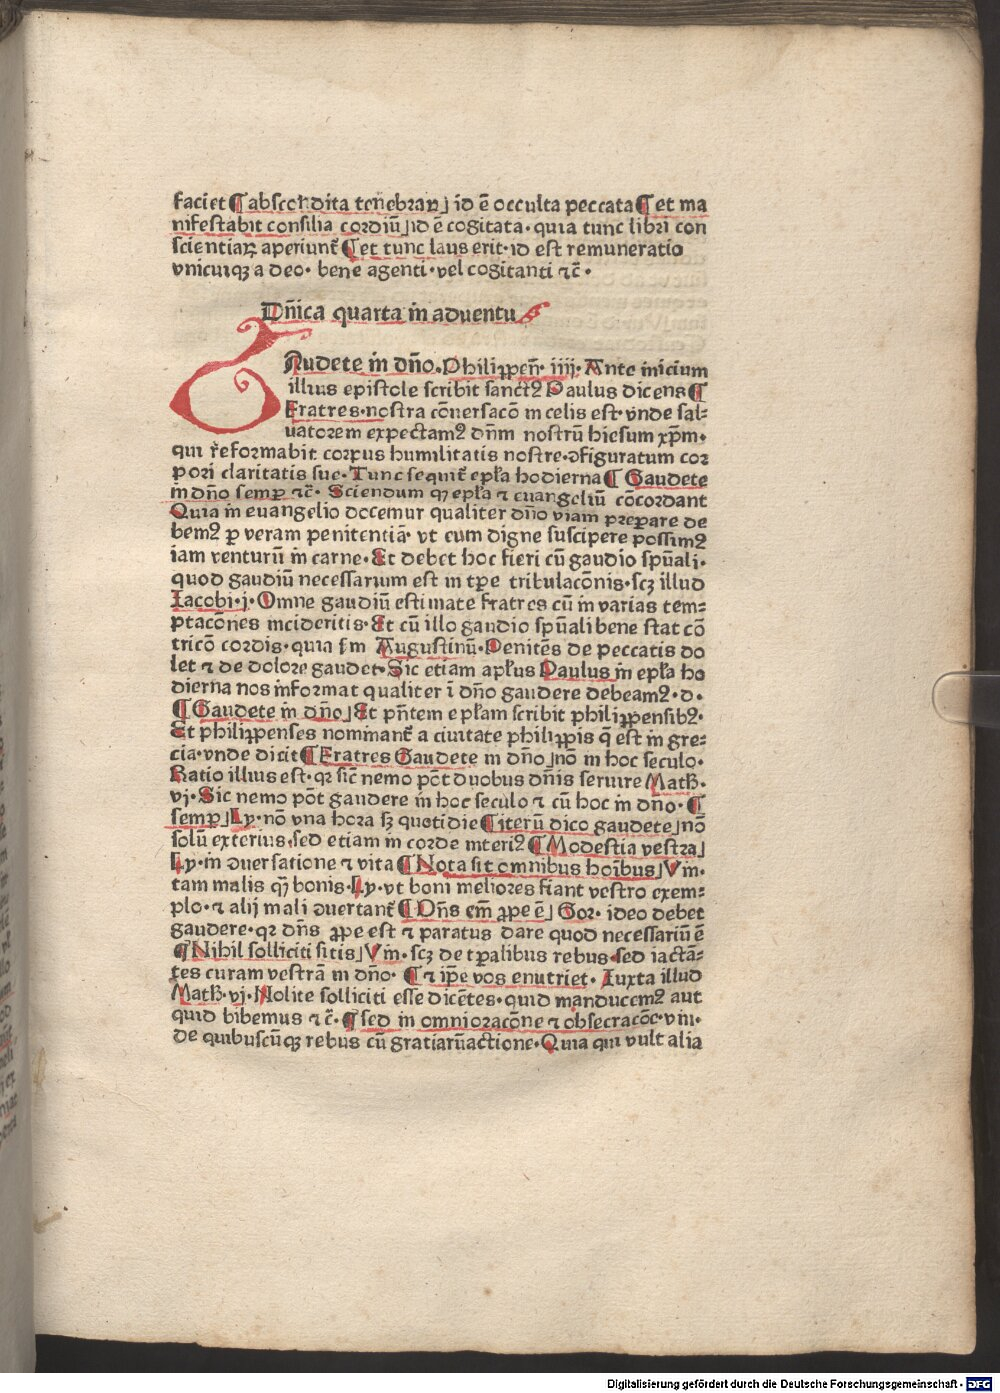 faciet ¶ abscondita tenebraꝝ] id ē occulta peccata ¶ et ma
nifestabit consilia cordiū] id ē cogitata · quia tunc libri con
scientiaꝝ aperiunt̄ ¶ et tunc laus erit · id est remuneratio
vnicuiqꝫ a deo · bene agenti · vel cogitanti ⁊c̄ ·
Dn̄ica quarta in aduentu
GAudete in dn̄o. Philippen̄ · iiij · Ante inicium
illius epistole scribit sanctꝰ Paulus dicens ¶
Fratres · nostra cōuersacō in celis est · vnde sal⸗
uatorem expectamꝰ dn̄m nostrū hiesum xp̄m ·
qui reformabit corpus humilitatis nostre · ꝯfiguratum cor
pori claritatis sue · Tunc sequit̄ ep̄la hodierna ¶ Gaudete
in dn̄o semꝑ ⁊c̄ · Sciendum ꝙ ep̄la ⁊ euangeliū cōcordant
Quia in euangelio docemur qualiter dn̄o viam preparare de
bemꝰ ꝑ veram penitentiā · vt eum digne suscipere possimꝰ
iam venturū in carne · Et debet hoc fieri cū gaudio sp̄uali ·
quod gaudiū necessarium est in tꝑe tribulacōnis · scꝫ illud
Iacobi · j · Omne gaudiū estimate fratres cū in varias tem⸗
ptacōnes incideritis · Et cū illo gaudio sp̄uali bene stat cō
tricō cordis · quia ẜm Augustinū · Penitēs de peccatis do
let ⁊ de dolore gaudet · Sic etiam ap̄lus Paulus in ep̄la ho
dierna nos informat qualiter ī dn̄o gaudere debeamꝰ · d ·
¶ Gaudete in dn̄o] Et pn̄tem ep̄lam scribit philippensibꝰ ·
Et philippenses nominant̄ a ciuitate philippis q̄ est in gre⸗
cia · vnde dicit ¶ Fratres Gaudete in dn̄o] nō in hoc seculo ·
Ratio illius est · qꝛ sic̄ nemo pōt duobus dn̄is seruire Math̄ ·
vj · Sic nemo pōt gaudere in hoc seculo ⁊ cū hoc in dn̄o · ¶
semꝑ] Ly · nō vna hora sꝫ quotidie ¶ iterū dico gaudete] nō
solū exterius · sed etiam in corde interiꝰ ¶ Modestia vestra]
Ly · in ꝯuersatione ⁊ vita ¶ Nota sit omnibus hoībus] Vin ·
tam malis qͫ bonis · Ly · vt boni meliores fiant vestro exem⸗
plo · ⁊ alij mali ꝯuertant̄ ¶ Dn̄s em̄ ꝓpe ē] Gor · ideo debet
gaudere · qꝛ dn̄s ꝓpe est ⁊ paratus dare quod necessariū ē
¶ Nihil solliciti sitis] Vin · scꝫ de tꝑalibus rebus · sed iactā⸗
tes curam vestrā in dn̄o · ¶ ⁊ ip̄e vos enutriet · Iuxta illud
Math̄ · vj · Nolite solliciti esse dicētes · quid manducemꝰ aut
quid bibemus ⁊c̄ · ¶ sed in omni oracōne ⁊ obsecracōe · vin ·
de quibuscūqꝫ rebus cū gratiarū actione · Quia qui vult alia
Digitalisierung gefördert durch die Deutsche Forschungsgemeinschaft - DFG